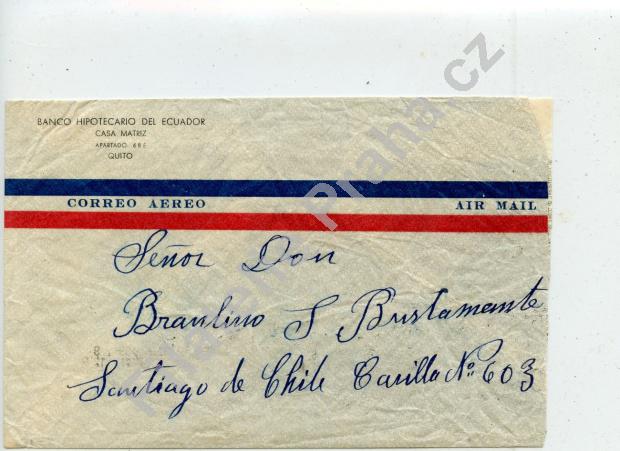 BANCO HIPOTECARIO DEL ECUADOR
CASA MATRIZ
APARTADO 685
QUITO
CORREO AEREO AIR MAIL
Señor Don
Braulino S. Bustamante
Santiago de Chile Carilla Nº 603
Praha.cz